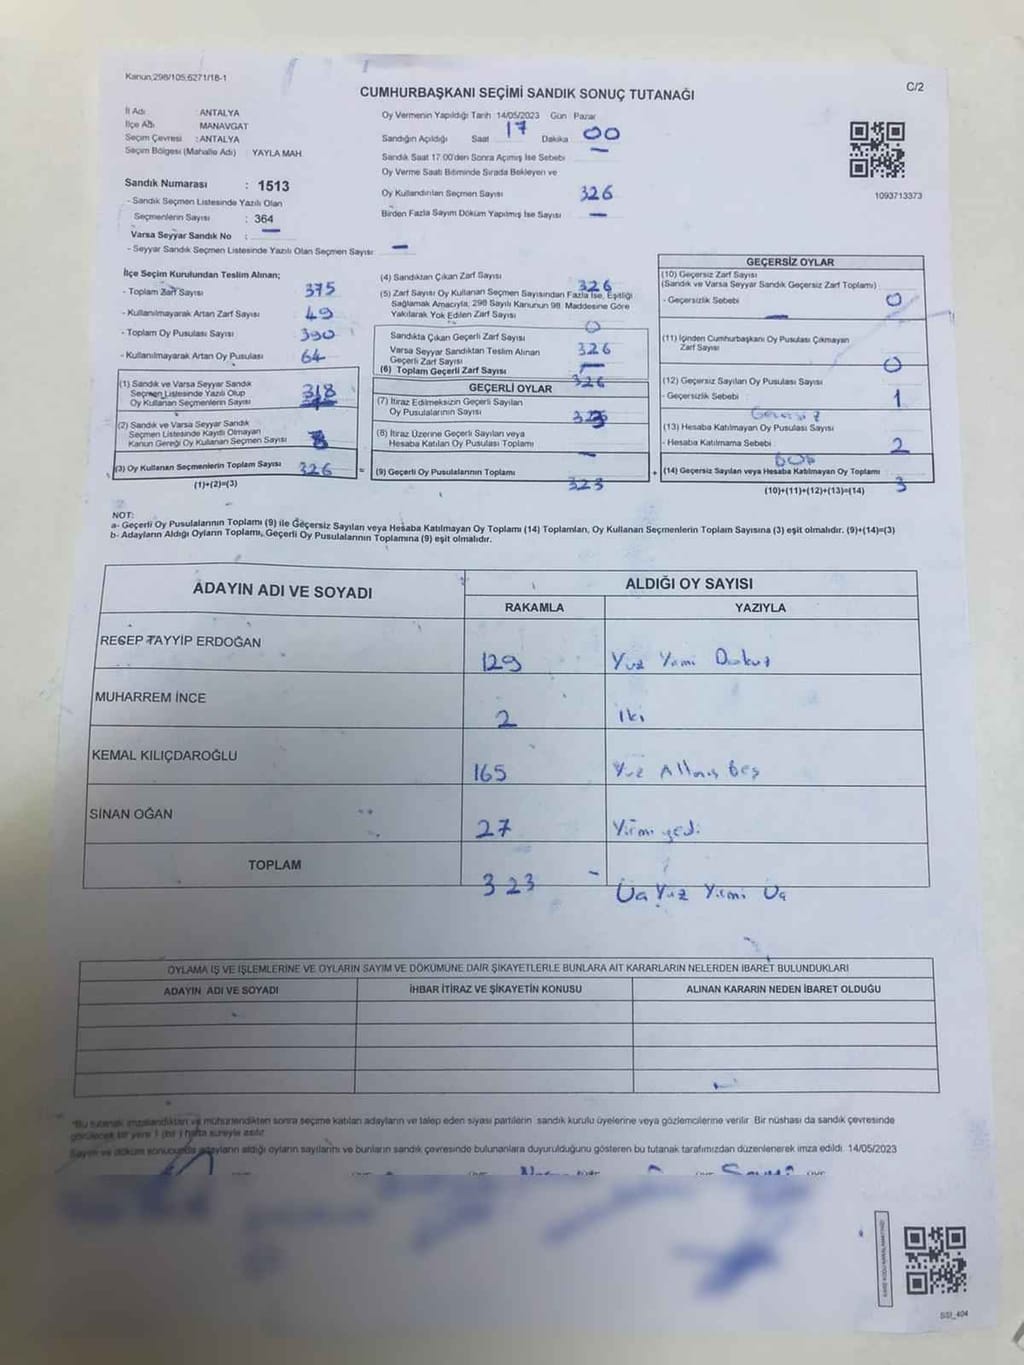 Kanun,298/105,6271/18-1
C/2
CUMHURBAŞKANI SEÇİMİ SANDIK SONUÇ TUTANAĞI
İl Adı : ANTALYA
İlçe Adı : MANAVGAT
Seçim Çevresi : ANTALYA
Seçim Bölgesi (Mahalle Adı) YAYLA MAH.
Sandık Numarası : 1513
- Sandık Seçmen Listesinde Yazılı Olan
Seçmenlerin Sayısı : 364
Varsa Seyyar Sandık No : —
- Seyyar Sandık Seçmen Listesinde Yazılı Olan Seçmen Sayısı : —
Oy Vermenin Yapıldığı Tarih 14/05/2023 Gün : Pazar
Sandığın Açıldığı Saat 17 Dakika 00
Sandık Saat 17:00'den Sonra Açımış İse Sebebi —
Oy Verme Saati Bitiminde Sırada Bekleyen ve
Oy Kullandırılan Seçmen Sayısı 326
Birden Fazla Sayım Döküm Yapılmış İse Sayısı —
1093713373
İlçe Seçim Kurulundan Teslim Alınan;
- Toplam Zarf Sayısı 375
- Kullanılmayarak Artan Zarf Sayısı 49
- Toplam Oy Pusulası Sayısı 390
- Kullanılmayarak Artan Oy Pusulası 64
(1) Sandık ve Varsa Seyyar Sandık
Seçmen Listesinde Yazılı Olup
Oy Kullanan Seçmenlerin Sayısı 318
(2) Sandık ve Varsa Seyyar Sandık
Seçmen Listesinde Kayıtlı Olmayan
Kanun Gereği Oy Kullanan Seçmen Sayısı 8
(3) Oy Kullanan Seçmenlerin Toplam Sayısı 326
(1)+(2)=(3)
(4) Sandıktan Çıkan Zarf Sayısı 326
(5) Zarf Sayısı Oy Kullanan Seçmen Sayısından Fazla İse, Eşitliği
Sağlamak Amacıyla, 298 Sayılı Kanunun 98. Maddesine Göre
Yakılarak Yok Edilen Zarf Sayısı 0
Sandıkta Çıkan Geçerli Zarf Sayısı 326
Varsa Seyyar Sandıktan Teslim Alınan
Geçerli Zarf Sayısı —
(6) Toplam Geçerli Zarf Sayısı 326
GEÇERLİ OYLAR
(7) İtiraz Edilmeksizin Geçerli Sayılan
Oy Pusulalarının Sayısı 323
(8) İtiraz Üzerine Geçerli Sayılan veya
Hesaba Katılan Oy Pusulası Toplamı —
= (9) Geçerli Oy Pusulalarının Toplamı 323
GEÇERSİZ OYLAR
(10) Geçersiz Zarf Sayısı
(Sandık ve Varsa Seyyar Sandık Geçersiz Zarf Toplamı)
- Geçersizlik Sebebi 0
—
(11) İçinden Cumhurbaşkanı Oy Pusulası Çıkmayan
Zarf Sayısı 0
(12) Geçersiz Sayılan Oy Pusulası Sayısı
- Geçersizlik Sebebi 1
Geçersiz
(13) Hesaba Katılmayan Oy Pusulası Sayısı
- Hesaba Katılmama Sebebi 2
BOŞ
+ (14) Geçersiz Sayılan veya Hesaba Katılmayan Oy Toplamı 3
(10)+(11)+(12)+(13)=(14)
NOT:
a- Geçerli Oy Pusulalarının Toplamı (9) ile Geçersiz Sayılan veya Hesaba Katılmayan Oy Toplamı (14) Toplamları, Oy Kullanan Seçmenlerin Toplam Sayısına (3) eşit olmalıdır. (9)+(14)=(3)
b- Adayların Aldığı Oyların Toplamı, Geçerli Oy Pusulalarının Toplamına (9) eşit olmalıdır.
ADAYIN ADI VE SOYADI ALDIĞI OY SAYISI
RAKAMLA YAZIYLA
RECEP TAYYİP ERDOĞAN 129 Yüz Yirmi Dokuz
MUHARREM İNCE 2 İki
KEMAL KILIÇDAROĞLU 165 Yüz Altmış Beş
SİNAN OĞAN 27 Yirmi yedi
TOPLAM 323 Üç Yüz Yirmi Üç
OYLAMA İŞ VE İŞLEMLERİNE VE OYLARIN SAYIM VE DÖKÜMÜNE DAİR ŞİKAYETLERLE BUNLARA AİT KARARLARIN NELERDEN İBARET BULUNDUKLARI
ADAYIN ADI VE SOYADI İHBAR İTİRAZ VE ŞİKAYETİN KONUSU ALINAN KARARIN NEDEN İBARET OLDUĞU
*Bu tutanak imzalandıktan ve mühürlendikten sonra seçime katılan adayların ve talep eden siyasi partilerin sandık kurulu üyelerine veya gözlemcilerine verilir. Bir nüshası da sandık çevresinde
görülecek bir yere 1 (bir) hafta süreyle asılır.
Sayım ve döküm sonucunda adayların aldığı oyların sayılarını ve bunların sandık çevresinde bulunanlara duyurulduğunu gösteren bu tutanak tarafımızdan düzenlenerek imza edildi. 14/05/2023
SSI_404